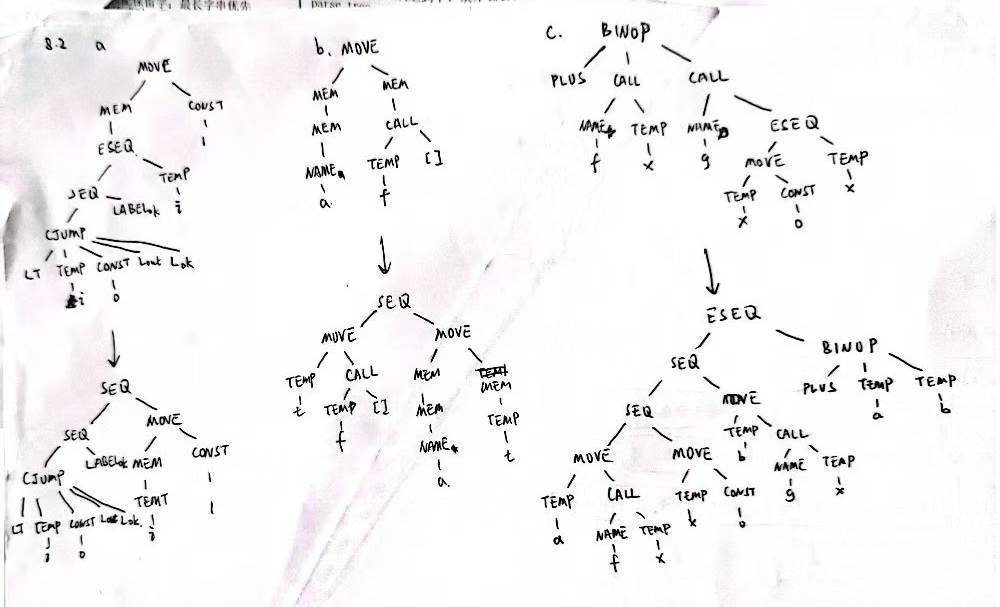 最长字串优先
parse tree
8.2 a
MOVE
MEM CONST
1
ESEQ
SEQ TEMP
LABELok i
CJUMP
LT TEMP CONST Lout Lok
i 0
SEQ
SEQ MOVE
CJUMP LABELok MEM CONST
TEMT 1
LT TEMP CONST Lout Lok
i 0 i
b. MOVE
MEM MEM
MEM CALL
NAME TEMP []
a f
SEQ
MOVE MOVE
TEMP CALL MEM MEM
t TEMP [] MEM TEMP
f NAME t
a
c. BINOP
PLUS CALL CALL
NAME TEMP NAME ESEQ
f x g MOVE TEMP
TEMP CONST x
x 0
ESEQ
SEQ BINOP
SEQ MOVE PLUS TEMP TEMP
TEMP CALL a b
MOVE MOVE b NAME TEMP
TEMP CALL TEMP CONST g x
a NAME TEMP x 0
f x